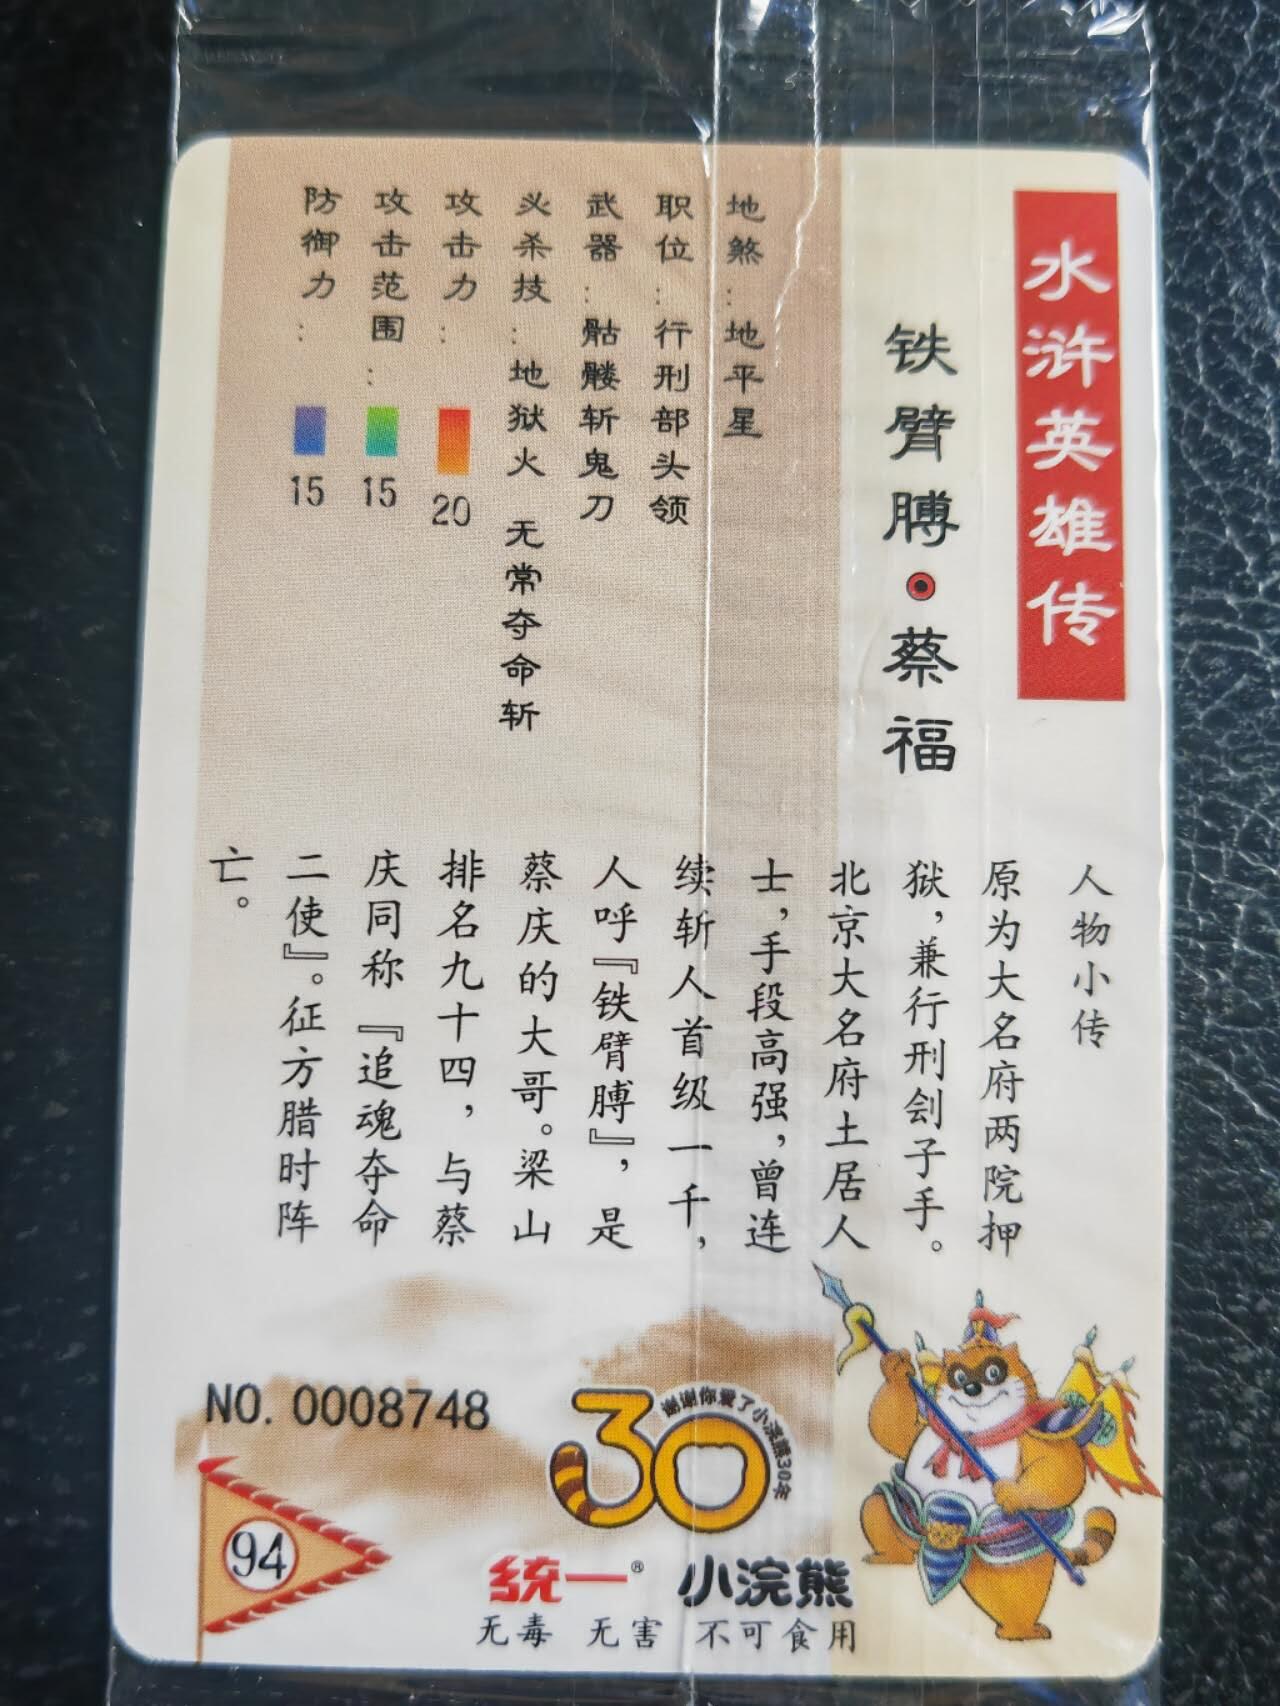 水浒英雄传
铁臂膊·蔡福
地煞：地平星
职位：行刑部头领
武器：骷髅斩鬼刀
必杀技：地狱火 无常夺命斩
攻击力：20
攻击范围：15
防御力：15
人物小传
原为大名府两院押
狱，兼行刑刽子手。
北京大名府土居人
士，手段高强，曾连
续斩人首级一千，
人呼『铁臂膊』，是
蔡庆的大哥。梁山
排名九十四，与蔡
庆同称『追魂夺命
二使』。征方腊时阵
亡。
NO. 0008748
30
谢谢你爱了小浣熊30年
94
统一® 小浣熊
无毒 无害 不可食用